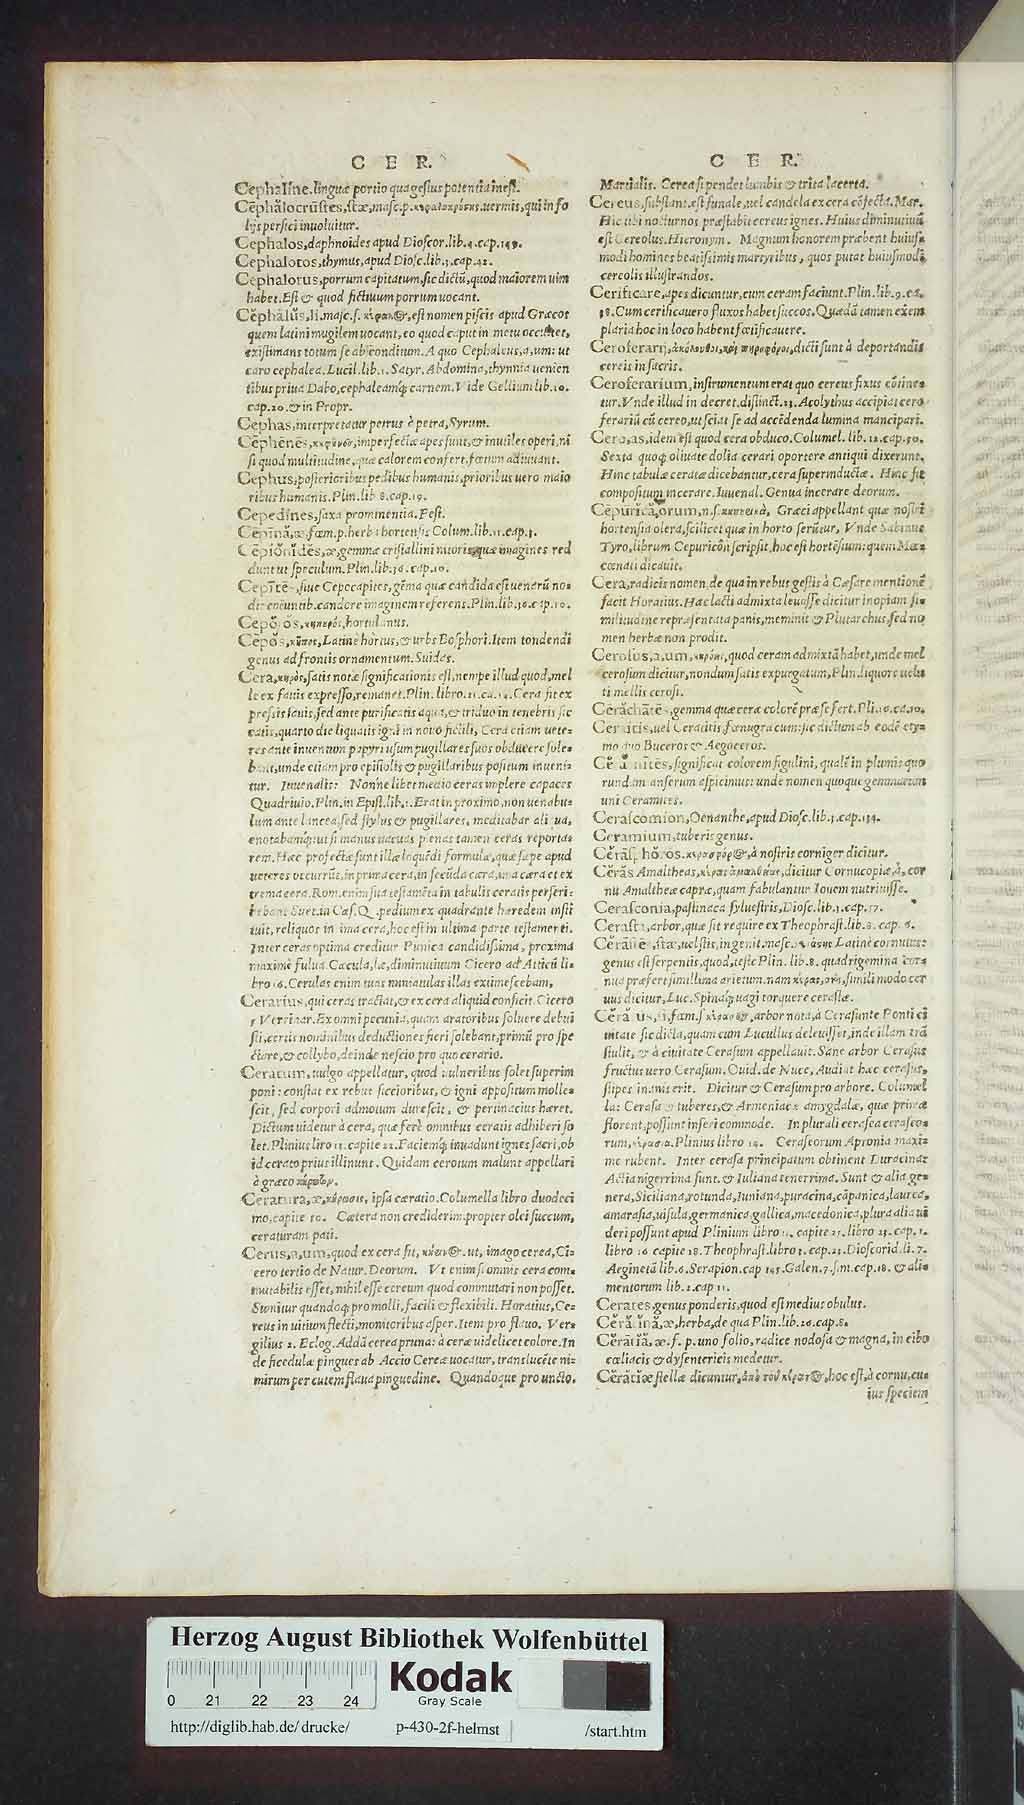 C E R.
Cephaline, linguæ portio qua gustus potentia inest.
Cēphălocrūstes, stæ, masc. p. uermis, qui in fo
lijs persici inuoluitur.
Cephalos, daphnoides apud Dioscor. lib. 4. cap. 149.
Cephalotos, thymus, apud Diosc. lib. 3. cap. 42.
Cephalotus, porrum capitatum, sic dictũ, quod maiorem uim
habet. Est & quod sictiuum porrum uocant.
Cĕphălŭs, li. masc. s. est nomen piscis apud Græcos
quem latini mugilem uocant, eo quod caput in metu occultet,
existimans totum se absconditum. A quo Cephaleus, a, um: ut
caro cephalea. Lucil. lib. 1. Satyr. Abdomina, thynnia uenien
tibus priua Dabo, cephaleamq; carnem. Vide Gellium lib. 10.
cap. 20. & in Propr.
Cephas, interpretatur petrus è petra, Syrum.
Cēphēnĕs, imperfectæ apes sunt, & inutiles operi, ni
si quod multitudine, quæ calorem confert, fœtum adiuuant.
Cephus, posterioribus pedibus humanis, prioribus uero maio
ribus humanis. Plin. lib 8. cap. 19.
Cepedines, saxa prominentia. Fest.
Cēpină, æ, fœm. p. herba hortensis Colum. lib. 11. cap. 3.
Cēpiŏnĭdĕs, æ, gemmæ cristallini nitoris, quæ imagines red
dunt ut speculum. Plin. lib. 36. cap. 10.
Cepītes, siue Cepocapites, gēma quæ candida est uenarũ no-
dis coeuntib. candore imaginem referens. Plin. lib. 36. cap. 10.
hortulanus.
Cepŏs, κῆπος, Latine hortus, & urbs Bosphori. Item tondendi
genus ad frontis ornamentum. Suidas.
Cera, κηρὸς, satis notæ significationis est, nempe illud quod, mel
le ex fauis expresso, remanet. Plin. libro. 21. ca. 14. Cera fit ex
pressis fauis, sed ante purificatis aqua, & triduo in tenebris sic
catis, quarto die liquatis igni in nouo fictili, Cera etiam uete-
res ante inuentum papyri usum pugillares suos obducere sole-
bant, unde etiam pro epistolis & pugillaribus positum inueni=
tur. Iuuenalis: Nonne libet medio ceras implere capaces
Quadriuio. Plin. in Epist. lib. 1. Erat in proximo, non uenabu-
lum aut lancea, sed stylus & pugillares, meditabar aliqua,
enotabamq; ut si manus uacuas plenas tamen ceras reporta-
rem. Hæc profectæ sunt illæ loquēdi formulæ, quæ sæpe apud
ueteres occurrũt, in prima cera, in secũda cæra, ima cæra et ex
trema cera. Rom. enim sua testamēta in tabulis ceratis perscri=
bebant Suet. in Cæs. Q. pedium ex quadrante hæredem insti
tuit, reliquos in ima cera, hoc est in ultima parte testamenti.
Inter ceras optima creditur Punica candidissima, proxima
maximè fulua. Cæcula, læ, diminutiuum Cicero ad Atticũ li-
bro 16. Cerulas enim tuas miniatulas illas extimescebam,
Cerarius, qui ceras tractat, & ex cera aliquid conficit. Cicero
5 Verrinar. Ex omni pecunia, quam aratoribus soluere debui
sti, certis nominibus deductiones fieri solebant: primũ pro spe
ctore, & collybo, deinde nescio pro quo cerario.
Ceratum, uulgo appellatur, quod uulneribus solet superim
poni: constat ex rebus siccioribus, & igni appositum molle-
scit, sed corpori admotum durescit, & pertinacius hæret.
Dictum uidetur à cera, quæ ferè omnibus ceratis adhiberi so
let. Plinius liro 22. capite 22. Faciemq; inuadunt ignes sacri, ob
id cerato prius illinunt. Quidam cerotum malunt appellari
à græco κήρωτον.
Ceratura, æ, κήρωσις, ipsa cæratio. Columella libro duodeci
mo, capite 50. Cætera non crediderim: propter olei succum,
ceraturam pati.
Cerus, a, um, quod ex cera fit, ut, imago cerea, Ci-
cero tertio de Natur. Deorum. Vt enim si omnis cera com=
mutabilis esset, nihil esse cereum quod commutari non posset.
Sumitur quandoq; pro molli, facili & flexibili. Horatius, Ce-
reus in uitium flecti, monitoribus asper. Item pro flauo. Ver-
gilius 2. Eclog. Addā cerea pruna: à ceræ uidelicet colore. In
de ficedulæ pingues ab Accio Cereæ uocatur, translucēte ni-
mirum per cutem flaua pinguedine. Quandoque pro uncto.
C E R.
Martialis. Cerea si pendet lumbis & trita lacerta.
Cereus, substant. est funale, uel candela ex cera cōfecta. Mar.
Hic tibi nocturnos præstabit cereus ignes. Huius diminutiuũ
est Cereolus. Hieronym. Magnum honorem præbent huius=
modi homines beatissimis martyribus, quos putat huiusmodi
cereolis illustrandos.
Cerificare, apes dicuntur, cum ceram faciunt. Plin. lib. 9. ca.
38. Cum cerificauero fluxos habet succos. Quædā tamen exem
plaria hoc in loco habent fœtificauere.
Ceroferarij, ἀκόλουθοι, καὶ κηροφόροι, dicti sunt à deportandis
cereis in sacris.
Ceroferarium, instrumentum erat quo cereus fixus cōtine=
tur. Vnde illud in decret. distinct. 23. Acolythus accipiat cero
ferariũ cũ cereo, ut sciat se ad accēdenda lumina mancipari.
Cero, as, idem est quod cera obduco. Columel. lib. 12. cap. 50.
Sexta quoq; oliuate dolia cerari oportere antiqui dixerunt.
Hinc tabulæ ceratæ dicebantur, cera superinductæ. Hinc fit
compositum incerare. Iuuenal. Genua incerare deorum.
Cēpuricā, orum, n. s. Græci appellant quæ nostri
hortensia olera, scilicet quæ in horto serũtur, Vnde Sabinus
Tyro, librum Cepuricōn scripsit, hoc est hortēsium: quem Mæ=
cœnati dicauit.
Cera, radicis nomen, de qua in rebus gestis à Cæsare mentionē
facit Horatius. Hæc lacti admixta leuasse dicitur inopiam si=
militudine repræsentata panis, meminit & Plutarchus, sed no
men herbæ non prodit.
Cerosus, a, um, quod ceram admixtā habet, unde mel
cerosum dicitur, nondum satis expurgatum, Plin. liquore uelu-
ti mellis cerosi.
Cerăchātēs, gemma quæ ceræ colorē præ se fert. Pli. 36. ca. 10.
Ceraitis, uel Ceraditis fœnugræcum: sic dictum ab eodē ety=
mo quo Buceros & Aegoceros.
significat colorem figulini, qualē in plumis quo
rundam anserum aspicimus: unde nomen quoque gemmarum
uni Ceramites.
Cerascomion, Oenanthe, apud Diosc. lib. 3. cap. 134.
Ceramium, tuberis genus.
à nostris corniger dicitur.
Cĕrăs Amaltheas, dicitur Cornucopiæ, à, cor
nu Amaltheæ capræ, quam fabulantur Iouem nutriuisse.
Cerasconia, pastinaca syluestris, Diosc. lib. 3. cap. 57.
Cerasta, arbor, quæ sit require ex Theophrast. lib. 8. cap. 6.
stæ, uel stis, in genit. masc. Latinè cornutus:
genus est serpentis, quod, teste Plin. lib. 8. quadrigemina cor=
nua præfert simillima arietum. nam κέρας, simili modo cer
uus dicitur, Luc. Spinaq; uagi torquere cerastæ.
Cĕrăsus, si, fœm. s. arbor nota, à Cerasunte Ponti ci
uitate sic dicta, quam cum Lucullus deleuisset, inde illam trā
stulit, & à ciuitate Cerasum appellauit. Sane arbor Cerasus
fructus uero Cerasum. Ouid. de Nuce, Audiat hæc cerasus,
stipes inanis erit. Dicitur & Cerasum pro arbore. Columel
la: Cerasa & tuberes, & Armeniaca amygdalæ, quæ primæ
florent, possunt inseri commode. In plurali cerasea ceraseo-
rum, κέρασια. Plinius libro 14. Ceraseorum Apronia maxi=
me rubent. Inter cerasa principatum obtinent Duracinæ
Actia nigerrima sunt. & Iuliana tenerrima. Sunt & alia ge=
nera, Siciliana, rotunda, Iuniana, puracina, cāpanica, laurea,
amarasia, uisula, germanica, gallica, macedonica, plura alia ui
deri possunt apud Plinium libro 15. capite 25. libro 23. cap. 1.
libro 16 capite 18. Theophrast. libro 1. cap. 23. Dioscorid. li. 7.
Aeginetā lib. 6. Serapion. cap 145. Galen. 7. sim. cap. 18. & ali=
mentorum lib. 2. cap 11.
Cerates, genus ponderis, quod est medius obulus.
Cĕrătină, æ, herba, de qua Plin. lib. 26. cap. 8.
Cĕrătiă, æ. f. p. uno folio, radice nodosa & magna, in cibo
cœliacis & dysentericis medetur.
Cĕrătiæ stellæ dicuntur, ἀπὸ τοῦ κέρατ, hoc est, à cornu, cu=
ius speciem
Herzog August Bibliothek Wolfenbüttel
0 21 22 23 24
Kodak
Gray Scale
http://diglib.hab.de/drucke/ p-430-2f-helmst /start.htm